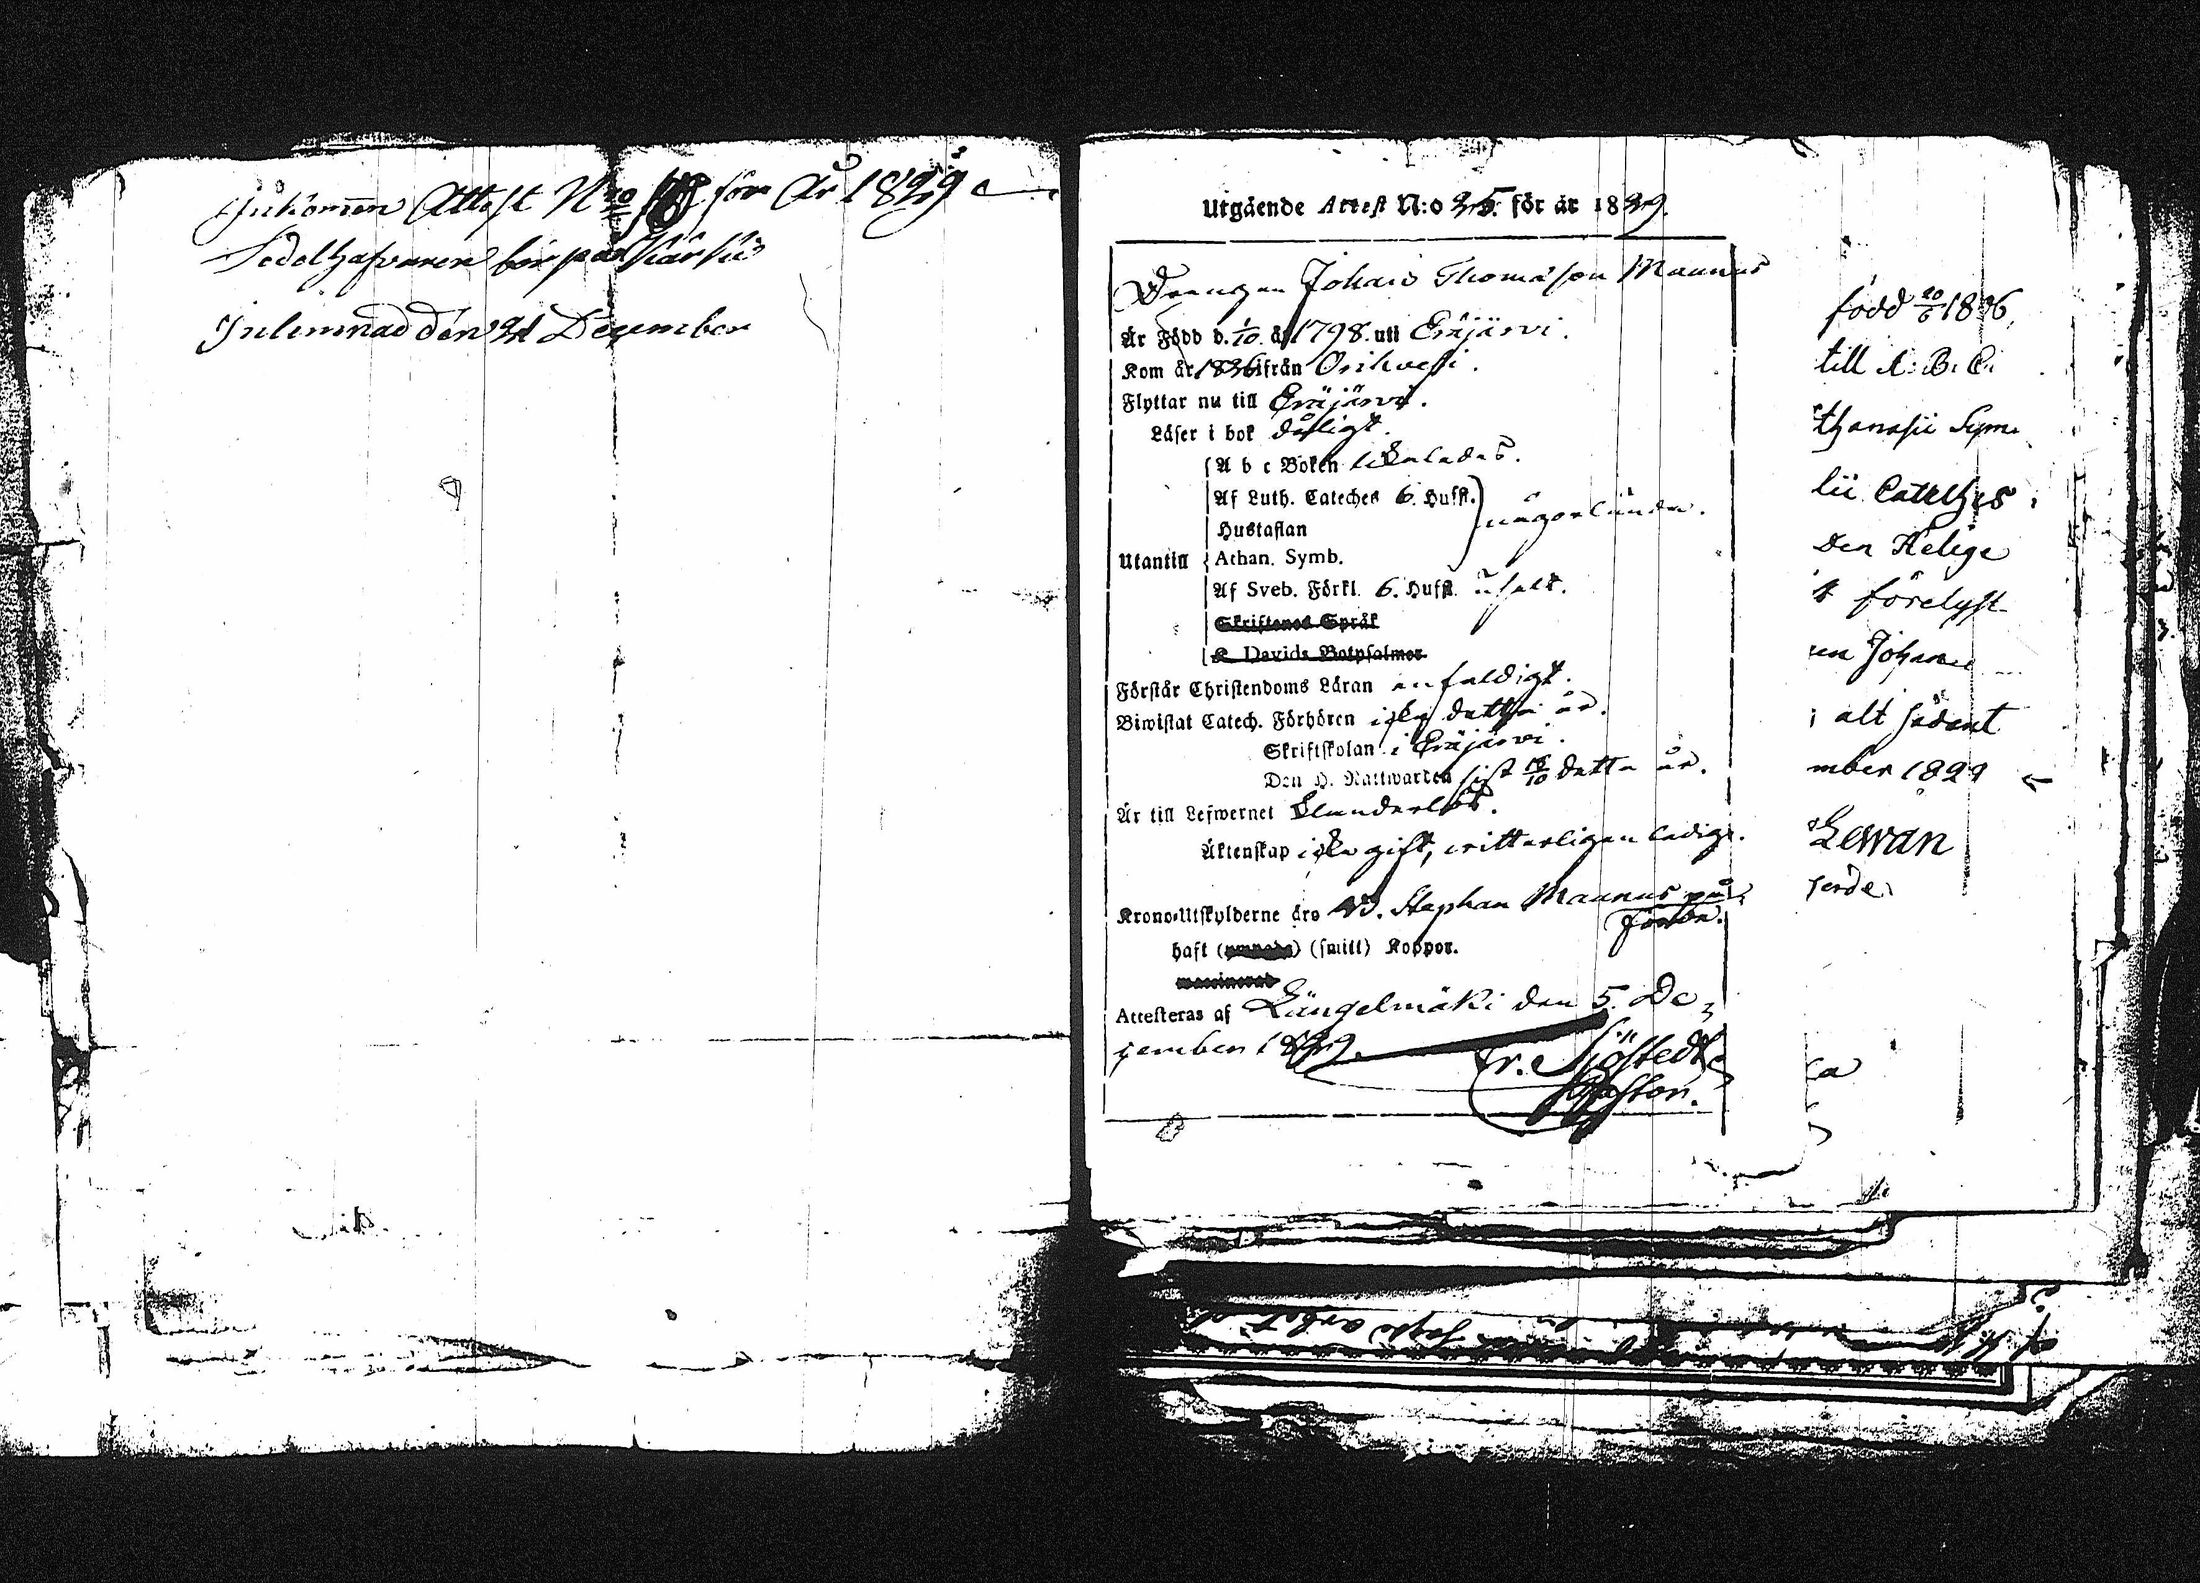 Inkommen Attest Nro för År 1829
Sedelhafvaren bör på Kärkis
Inlemnad den 21 December
Utgående Attest N:o 25. för år 1829.
Drengen Johan Thomasson Maunus
Är Född d. 1/10. år 1798. uti Eräjärvi.
Kom år 1826 ifrån Orihvesi.
Flyttar nu till Eräjärvi.
Läser i bok dåligt.
A b c Boken likaledes.
Af Luth. Cateches 6. Hufst.
Hustaflan någorlunda.
Utantill Athan. Symb.
Af Sveb. Förkl. 6. Hufst.
Skriftenes Språk
K. Davids Botpsalmer
Förstår Christendoms Läran enfaldigt.
Biwistat Catech. Förhören icke detta år.
Skriftskolan i Eräjärvi.
Den H. Nattwarden sist 18/10 detta år.
Är till Lefwernet klanderlös.
Äktenskap icke gift, vitterligen ledig.
Krono-Utskylderne äro Stephan Maunus på-
förde.
haft (smitt) Koppor.
waccinerad
Attesteras af Längelmäki den 5. De-
cember 1829.
Fr. Sjöstedt
Pastor.
född 20/6 1806,
till A. B. C.
thanasii Sym.
lii Cateches
den Helige
t förelyst
un Johan
i alt sådant
mber 1829
Lewan
ca